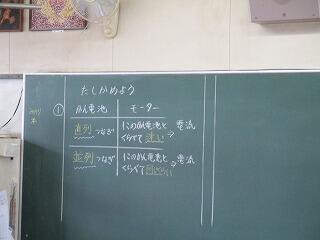 たしかめよう
①
かん電池 モーター
直列つなぎ 1このかん電池と
くらべて速い ⇒ 電流
並列つなぎ 1このかん電池と
くらべて同じくらい ⇒ 電流